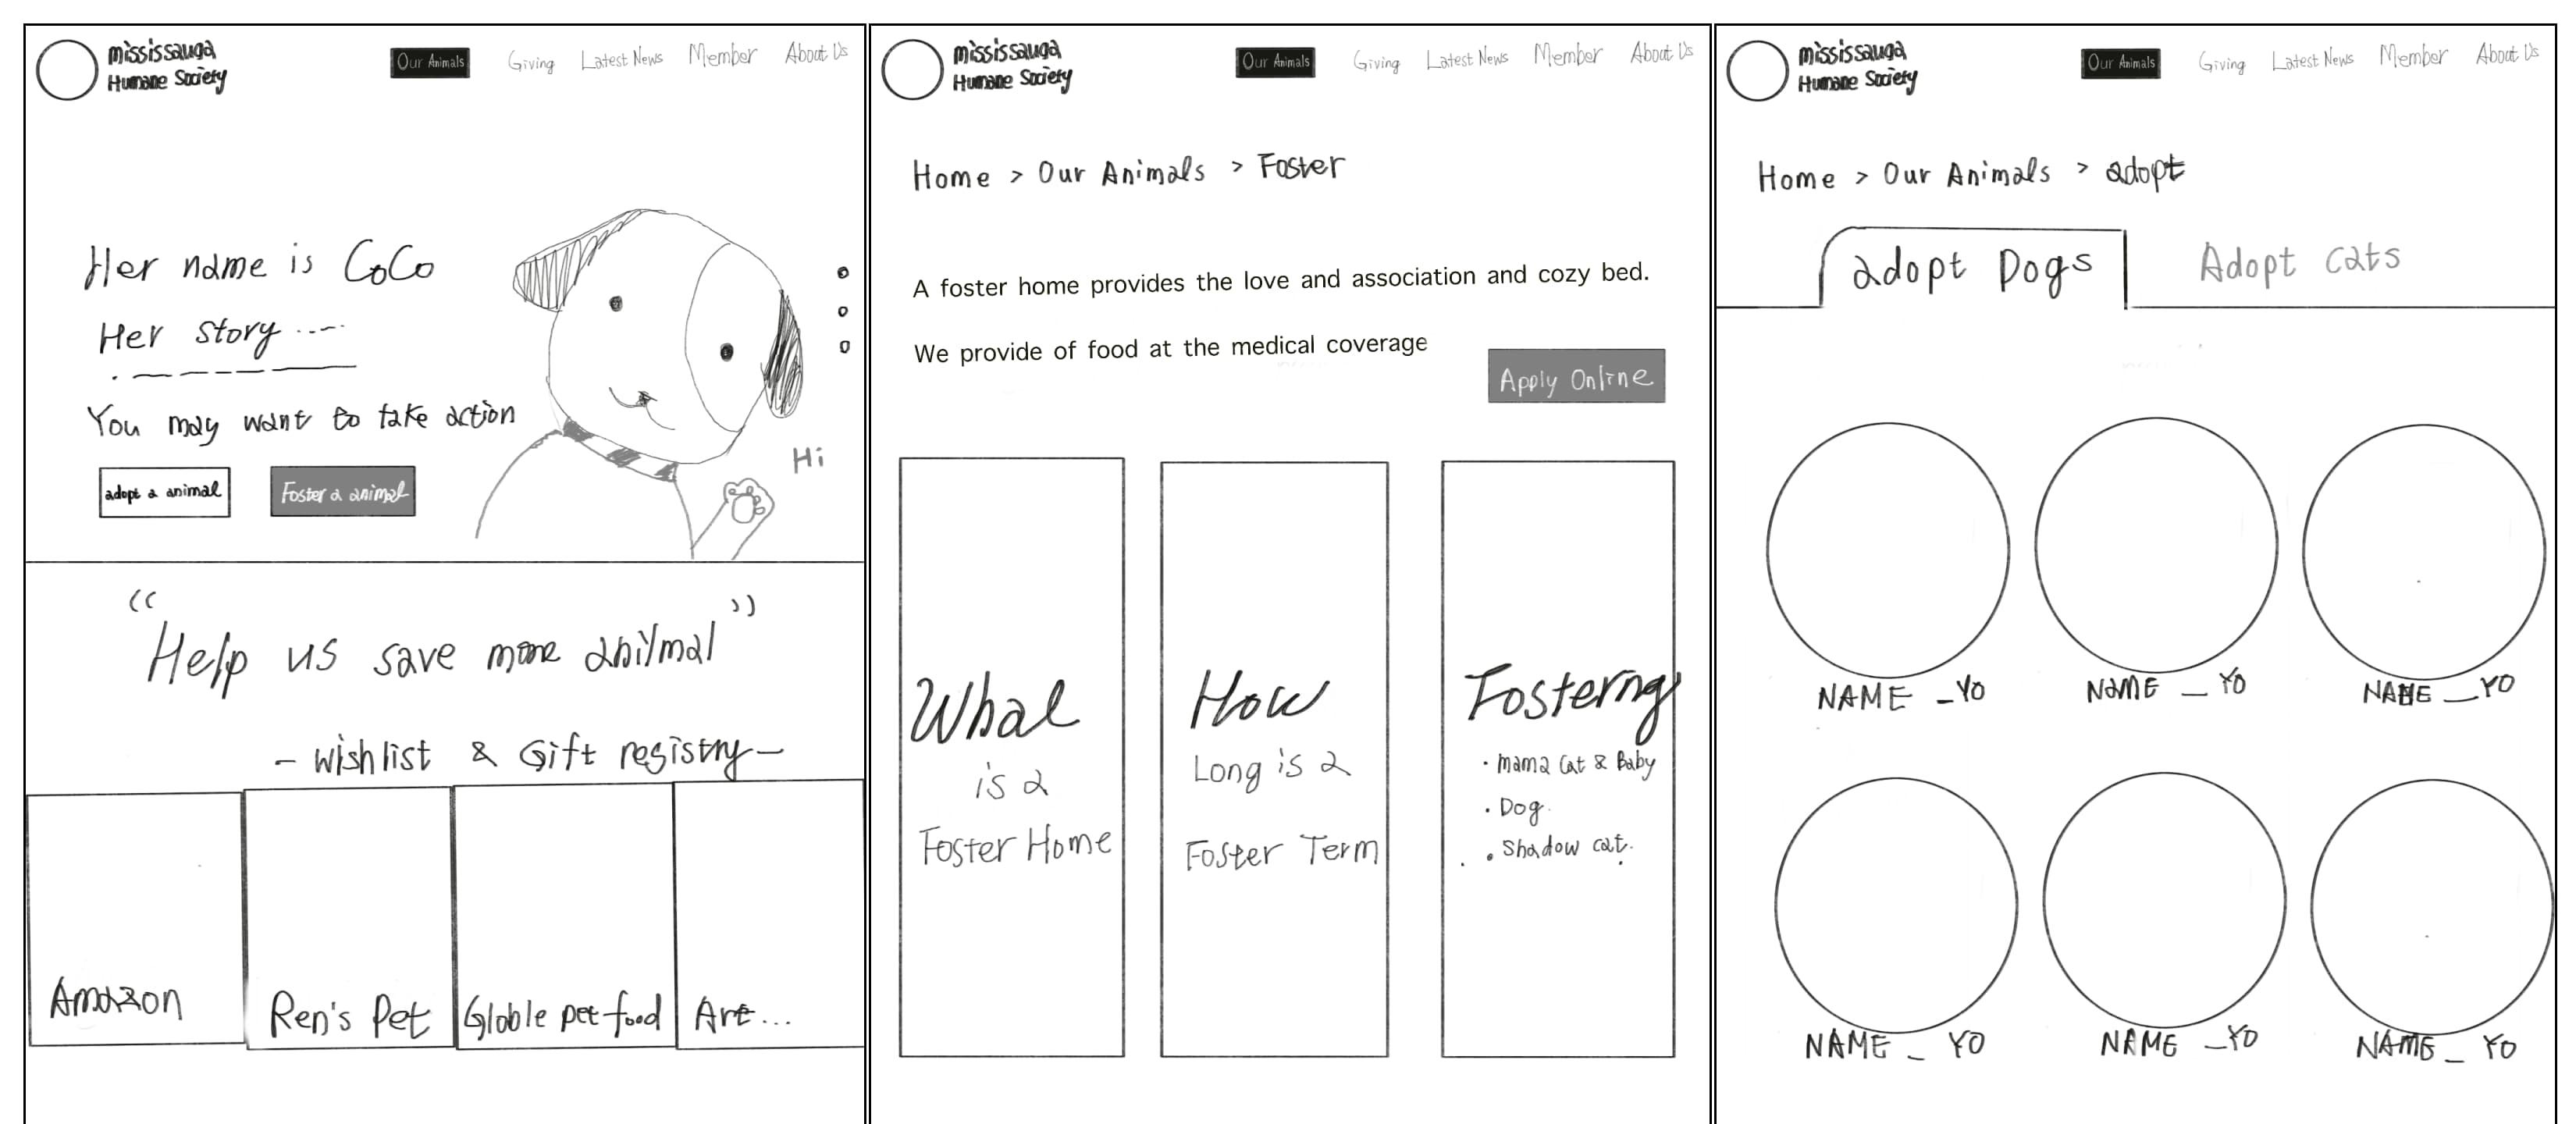 Mississauga
Humane Society
Our Animals Giving Latest News Member About Us
Her name is CoCo
Her story
You may want to take action
adopt a animal
Foster a animal
Hi
"Help us save more animal"
- wishlist & Gift registry -
Amazon
Ren's Pet
Globle pet food
Art...
Mississauga
Humane Society
Our Animals Giving Latest News Member About Us
Home > Our Animals > Foster
A foster home provides the love and association and cozy bed.
We provide of food at the medical coverage
Apply Online
What
is a
Foster Home
How
Long is a
Foster Term
Fosterng
• mama Cat & Baby
• Dog
• Shadow cat.
Mississauga
Humane Society
Our Animals Giving Latest News Member About Us
Home > Our Animals > adopt
adopt Dogs
Adopt cats
NAME _ YO
NAME _ YO
NAME _ YO
NAME _ YO
NAME _ YO
NAME _ YO